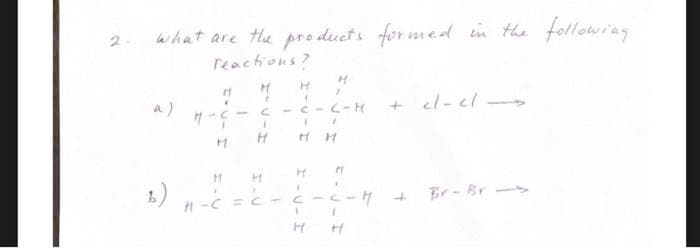 2. What are the products formed in the following
reactions?
H H H H
a) H-C - C - C - C-H + cl-cl →
H H H H
H H H H
b) H-C = C - C - C - H + Br-Br →
H H